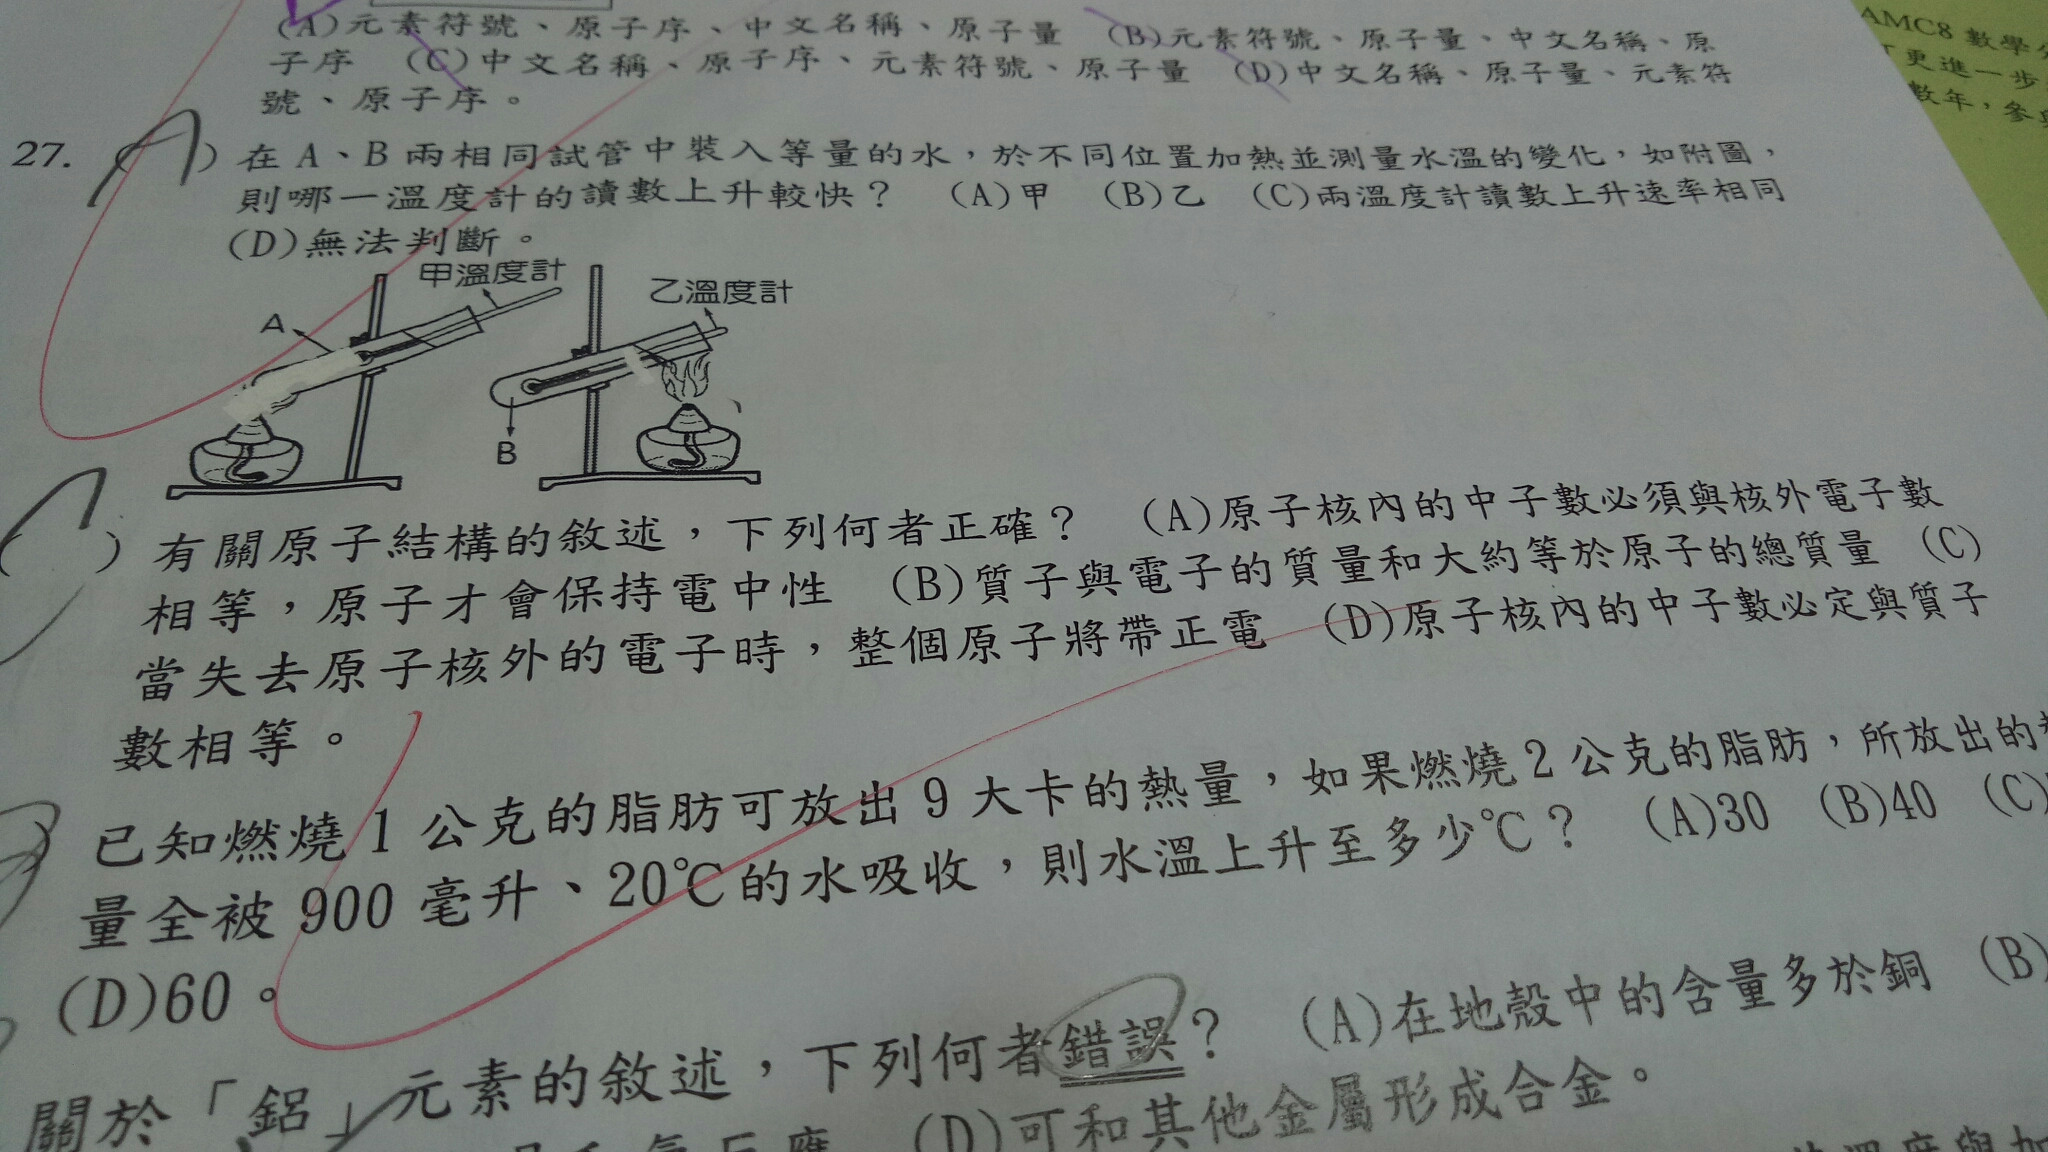 (A)元素符號、原子序、中文名稱、原子量 (B)元素符號、原子量、中文名稱、原
子序 (C)中文名稱、原子序、元素符號、原子量 (D)中文名稱、原子量、元素符
號、原子序。
AMC8 數學
更進一步
數年，參
27. (A) 在 A、B 兩相同試管中裝入等量的水，於不同位置加熱並測量水溫的變化，如附圖，
則哪一溫度計的讀數上升較快？ (A)甲 (B)乙 (C)兩溫度計讀數上升速率相同
(D)無法判斷。
甲溫度計
乙溫度計
A
B
( ) 有關原子結構的敘述，下列何者正確？ (A)原子核內的中子數必須與核外電子數
相等，原子才會保持電中性 (B)質子與電子的質量和大約等於原子的總質量 (C)
當失去原子核外的電子時，整個原子將帶正電 (D)原子核內的中子數必定與質子
數相等。
已知燃燒 1 公克的脂肪可放出 9 大卡的熱量，如果燃燒 2 公克的脂肪，所放出的
量全被 900 毫升、20℃的水吸收，則水溫上升至多少℃？ (A)30 (B)40 (C)
(D)60。
關於「鋁」元素的敘述，下列何者錯誤？ (A)在地殼中的含量多於銅 (B)
(D)可和其他金屬形成合金。